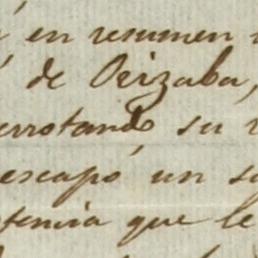 en resumen
de Orizaba,
errotando su
escapó un
que le